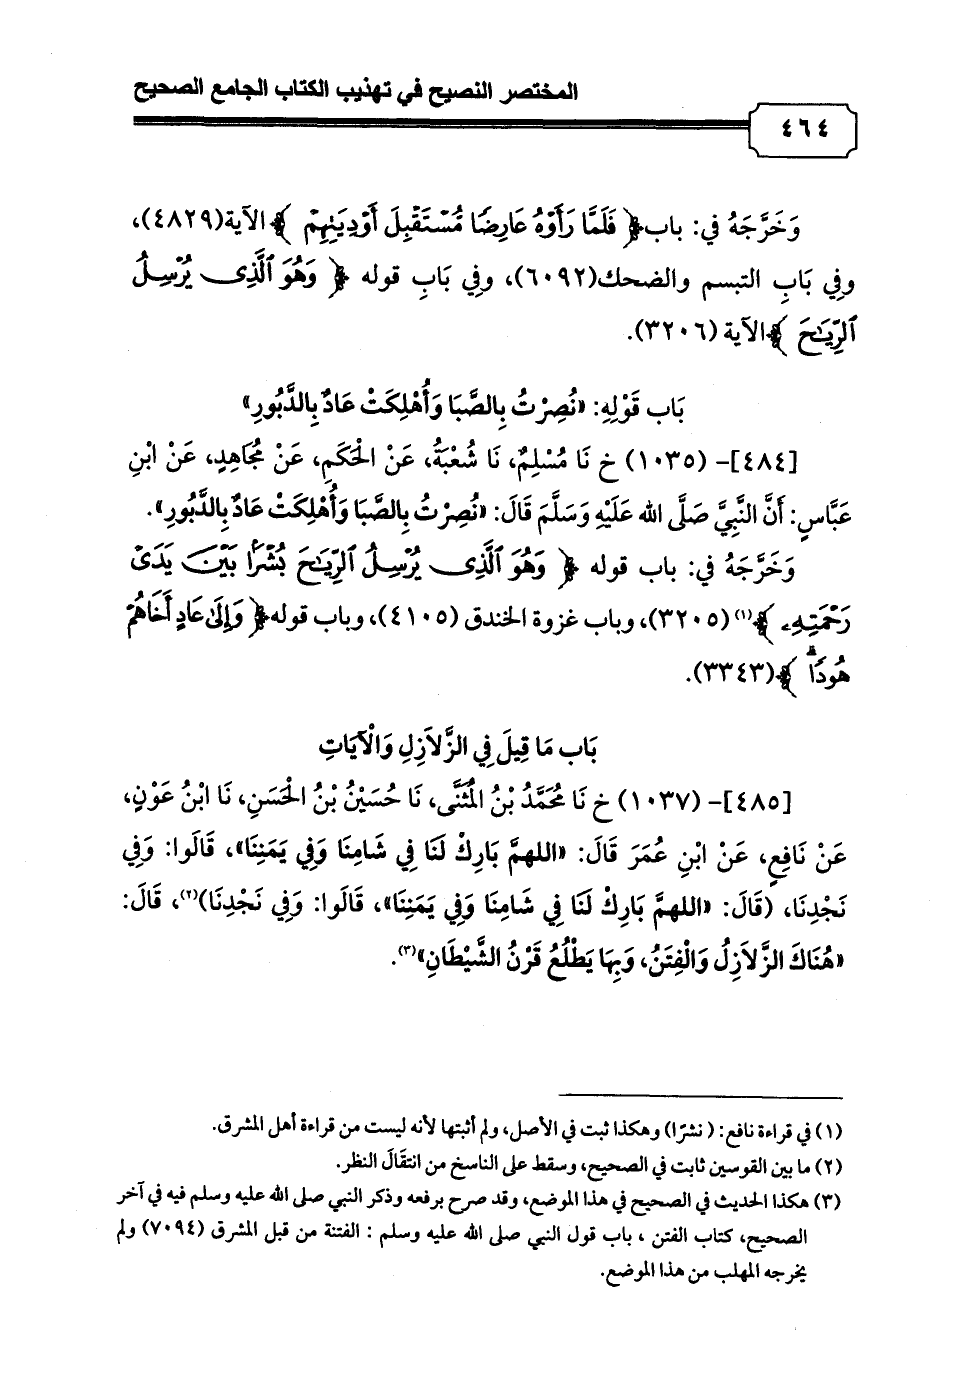 المختصر النصيح في تهذيب الكتاب الجامع الصحيح
٤٦٤
وَخَرَّجَهُ فِي: باب ﴿ فَلَمَّا رَأَوْهُ عَارِضًا مُّسْتَقْبِلَ أَوْدِيَتِهِمْ ﴾ الآية(٤٨٢٩)،
وفِي بَابِ التبسم والضحك(٦٠٩٢)، وفِي بَابِ قوله ﴿ وَهُوَ ٱلَّذِى يُرْسِلُ
ٱلرِّيَٰحَ ﴾الآية (٣٢٠٦).
بَاب قَوْلِهِ: «نُصِرْتُ بِالصَّبَا وَأُهْلِكَتْ عَادٌ بِالدَّبُورِ»
[٤٨٤]- (١٠٣٥) خ نَا مُسْلِمٌ، نَا شُعْبَةُ، عَنْ الْحَكَمِ، عَنْ مُجَاهِدٍ، عَنْ ابْنِ
عَبَّاسٍ: أَنَّ النَّبِيَّ صَلَّى الله عَلَيْهِ وَسَلَّمَ قَالَ: «نُصِرْتُ بِالصَّبَا وَأُهْلِكَتْ عَادٌ بِالدَّبُورِ».
وَخَرَّجَهُ فِي: باب قوله ﴿ وَهُوَ ٱلَّذِى يُرْسِلُ ٱلرِّيَٰحَ بُشْرًۢا بَيْنَ يَدَىْ
رَحْمَتِهِۦ ﴾(١) (٣٢٠٥)، وباب غزوة الخندق (٤١٠٥)، وباب قوله﴿ وَإِلَىٰ عَادٍ أَخَاهُمْ
هُودًا ۗ ﴾(٣٣٤٣).
بَاب مَا قِيلَ فِي الزَّلاَزِلِ وَالْآيَاتِ
[٤٨٥]- (١٠٣٧) خ نَا مُحَمَّدُ بْنُ الْمُثَنَّى، نَا حُسَيْنُ بْنُ الْحَسَنِ، نَا ابْنُ عَوْنٍ،
عَنْ نَافِعٍ، عَنْ ابْنِ عُمَرَ قَالَ: «اللهمَّ بَارِكْ لَنَا فِي شَامِنَا وَفِي يَمَنِنَا»، قَالُوا: وَفِي
نَجْدِنَا، (قَالَ: «اللهمَّ بَارِكْ لَنَا فِي شَامِنَا وَفِي يَمَنِنَا»، قَالُوا: وَفِي نَجْدِنَا)(٢)، قَالَ:
«هُنَاكَ الزَّلاَزِلُ وَالْفِتَنُ، وَبِهَا يَطْلُعُ قَرْنُ الشَّيْطَانِ»(٣).
(١) في قراءة نافع: ( نشرًا) وهكذا ثبت في الأصل، ولم أثبتها لأنه ليست من قراءة أهل المشرق.
(٢) ما بين القوسين ثابت في الصحيح، وسقط على الناسخ من انتقَالَ النظر.
(٣) هكذا الحديث في الصحيح في هذا الموضع، وقد صرح برفعه وذكر النبي صلى الله عليه وسلم فيه في آخر
الصحيح، كتاب الفتن ، باب قول النبي صلى الله عليه وسلم : الفتنة من قبل المشرق (٧٠٩٤) ولم
يخرجه المهلب من هذا الموضع.